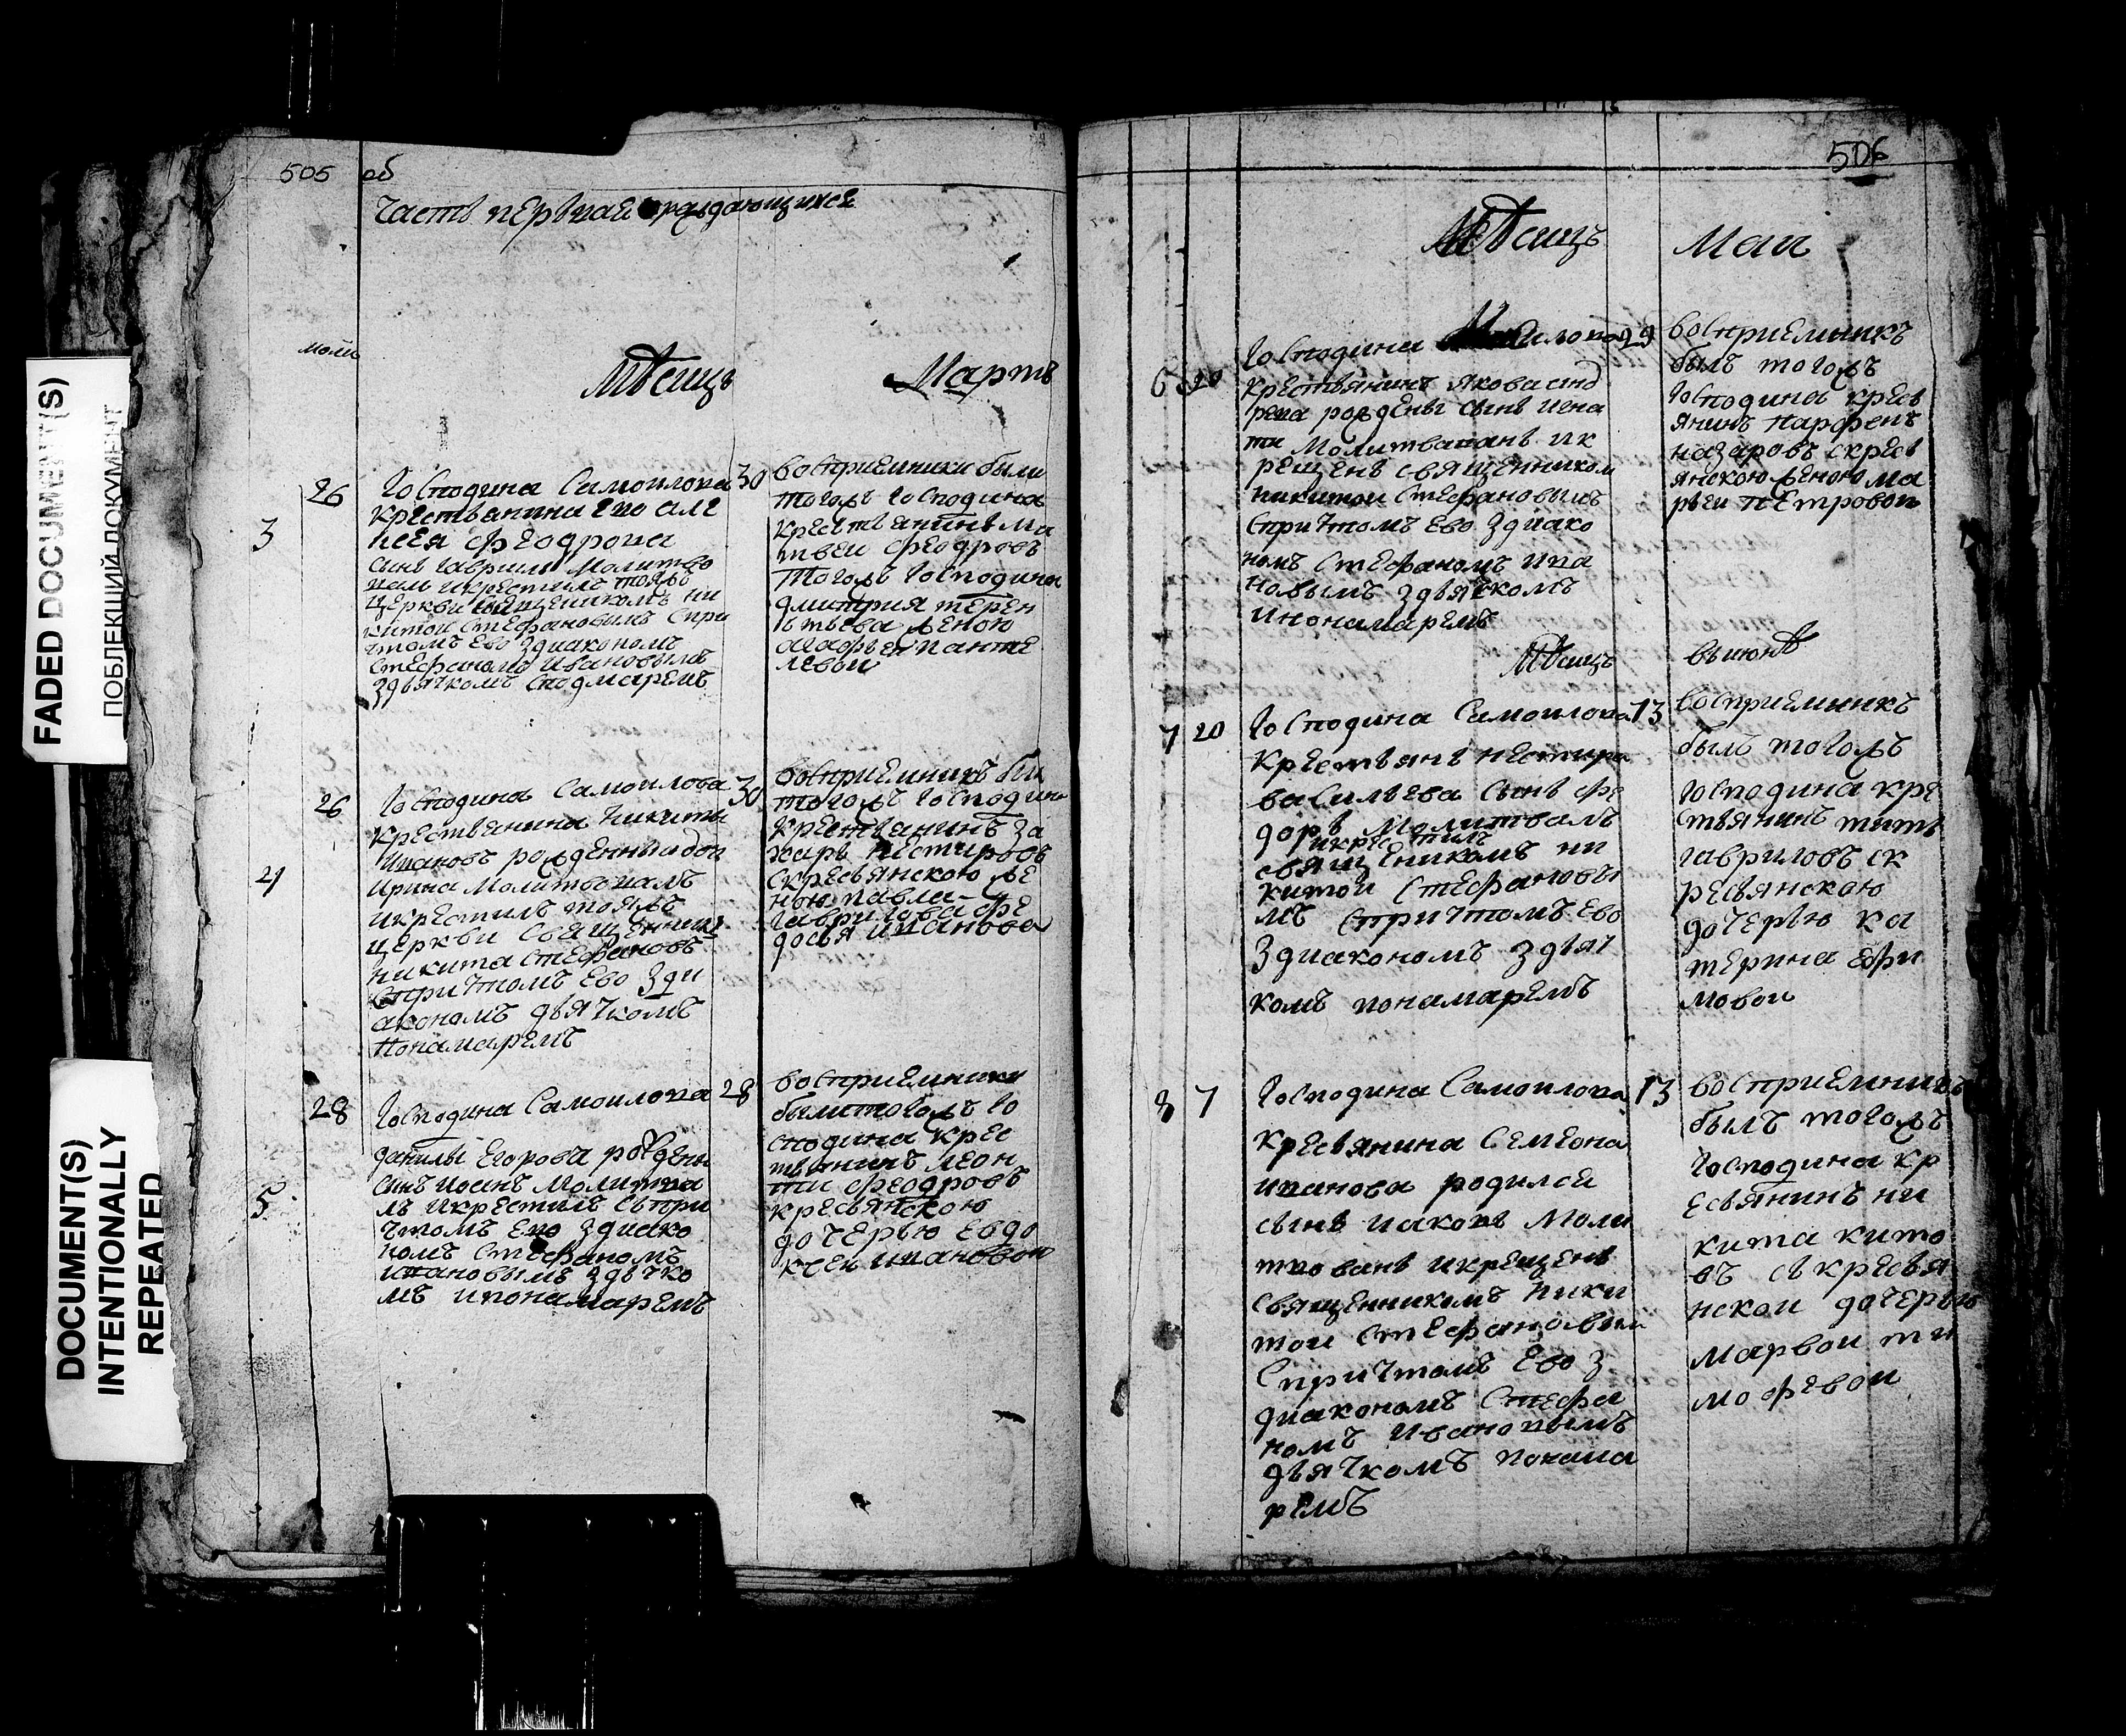 FADED DOCUMENT(S)
ПОБЛЕКШИЙ ДОКУМЕНТ
DOCUMENT(S)
INTENTIONALLY
REPEATED
505 об
часть первая ораждающихся
моли
Мѣсицъ Мартъ
3
26
Господина Самоилова
крестьянина ево але
ѯея феодрова
синъ гаврилъ молитво
валъ икрестилъ тояжъ
церкви священикомъ ни
китои стефановымъ спри
чтомъ ево здиакономъ
стефаномъ ивановымъ
здьячкомъ
30
восприемники были
тогожъ господина
крестьянинъ ма
твеи феодровъ
тогожъ господина
дмитрия терен
ьтьева женою
агафьеи панте
левои
4
26
Господина Самоилова
крестьянина никиты
ивановъ рожденны дои
ирина молитвовалъ
икрестилъ тояжъ
церкви священникъ
никита стефановъ
спричтомъ ево зди
акономъ дьячкомъ
понамаремъ
30
восприемникъ бы
тогожъ господина
крестьянинъ за
харъ нестировъ
скресьянскою же
ною павла
гаврилова фе
досья иванова
5
28
Господина Самоилова
данилы Егорова рожденъ
синъ иоанъ молитва
лъ икрестилъ съпри
чтомъ ево здиако
номъ стефаномъ
ивановымъ здьчко
мъ ипонамаремъ
28
восприемники
былитогожъ го
сподина крес
тьянинъ леон
тии феодровъ
кресьянскою
дочерью евдо
кѣеи ивановои
506
Мѣсицъ Маи
6
20
Господина
крестьянинъ Якова анд
реева рожденъ сынъ игна
ти молитвованъ ик
рещенъ священником
никитои стефановымъ
спричтомъ ево здиако
номъ стефаномъ ива
новымъ здьячкомъ
ипонамаремъ
29
восприемникъ
былъ тогожъ
господина кресь
янинъ парфенъ
назаровъ скресь
янскою женою ма
рьеи петровои
Мѣсицъ виюнѣ
7
20
Господина Самоилова
крестьянъ нестира
васильева сынъ фе
доръ молитвалъ
икрестилъ
священиком ни
китои стефановы
мъ спричтомъ ево
здиакономъ здьяч
комъ понамаремъ
13
восприемникъ
былъ тогожъ
господина кре
стьянинъ титъ
гавриловъ ск
ресьянскою
дочерью ка
терина ефи
мовои
8
7
Господина Самоилова
кресьянина Семеона
иванова родился
сынъ иаковъ моли
твованъ икрещенъ
священникомъ ники
тои стефановым
спричтомъ ево з
диакономъ стефа
номъ ивановымъ
дьячкомъ понама
ремъ
13
восприемникъ
былъ тогожъ
господина кр
есьянинъ ни
кита кито
въ съкресья
нскои дочерью
марвои ти
мофевои